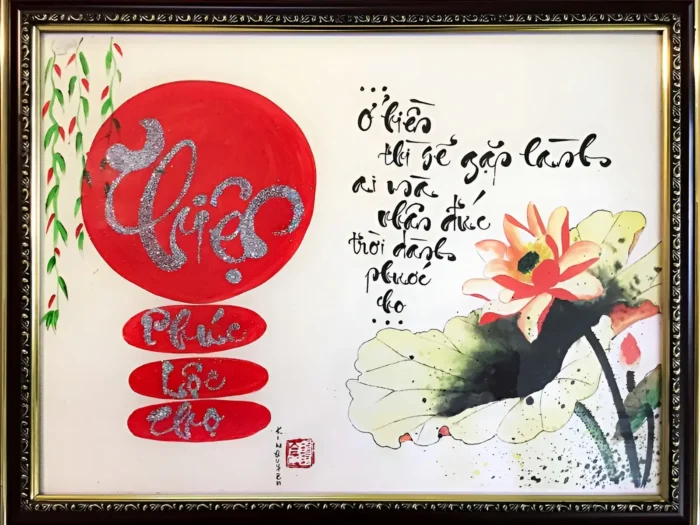 Thiện
Phúc
Lộc
Thọ
...
Ở hiền
thì sẽ gặp lành
ai mà
nhân đức
trời dành
phước
cho
...